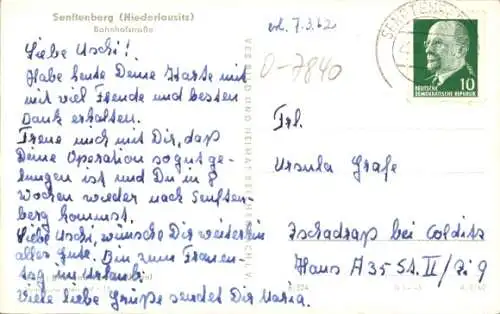 Senftenberg (Niederlausitz)
Bahnhofstraße
Liebe Uschi!
Habe heute Deine Karte mit
mit viel Freude und besten
Dank erhalten.
Freue mich mit Dir, daß
Deine Operation so gut ge-
lungen ist und Du in 8
Wochen wieder nach Senften-
berg kommst.
Liebe Uschi, wünsche Dir weiterhin
alles Gute. Bin zum Frauen-
tag in Urlaub.
Viele liebe Grüße sendet Dir Maria.
VEB BILD UND HEIMAT REICHENBACH I. V.
erh. 7.3.62
O-7840
SENFTENBERG
10
DEUTSCHE
DEMOKRATISCHE REPUBLIK
Frl.
Ursula Grafe
Zschadraß bei Colditz
Haus A 35 St. II/Zi 9